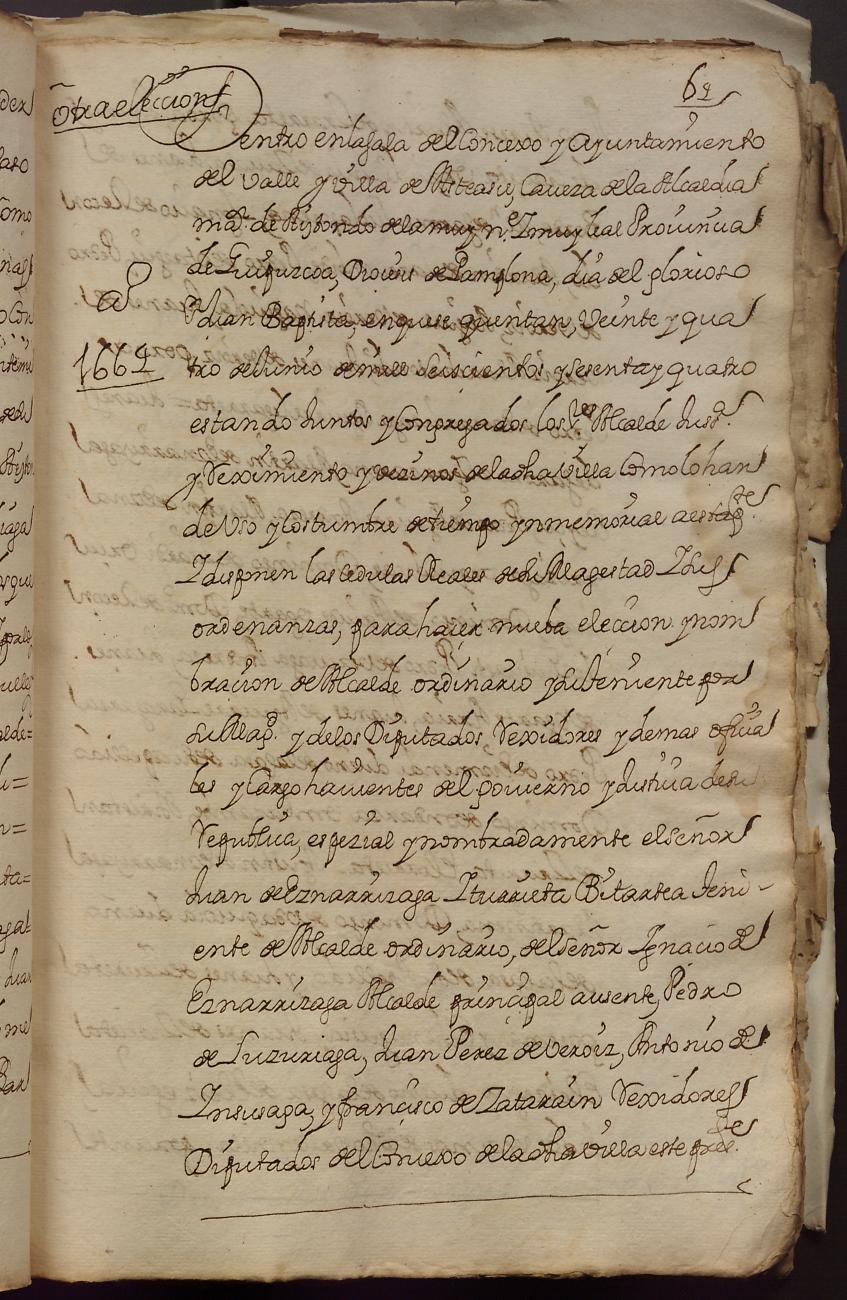 otra eleccion
64
Dentro en la sala del Concexo y Ayuntamiento
del valle y villa de Asteasu, Caveza de la Alcaldia
mar. de Aiztondo de la muy ne. I muy leal Provincia
de Guipuzcoa, Diocess de Pamplona, dia del glorioso
S Juan Baptista, en que se quentan, Veinte y qua
Aº
1664
tro de Junio de mill Seiscientos y sesenta y quatro
estando Juntos y Congregados los Sres Alcalde Just.
y Reximiento y vezinos de la dha villa Como lo han
de Vso y Costumbre de tiempo ynmemorial a esta pte
I disponen las cedulas Reales de su Magestad I sus
ordenanzas, para hacer nueba eleccion y nom
bracion de Alcalde ordinario y su teniente por
su Magd. y de los Diputados, Rexidores y demas oficia
les y Cargo havientes del govierno y Justicia de su
Republica, espezial y nombradamente el señor
Juan de Eznarrizaga Iturrieta Bitartea teni-
ente de Alcalde ordinario, del señor Ignacio de
Eznarrizaga Alcalde principal ausente, Pedro
de Luzuriaga, Juan Perez de Veroiz, Antonio de
Insusaga, y francisco de Zatarain Rexidores
Diputados del Concexo de la dha villa este pres.te